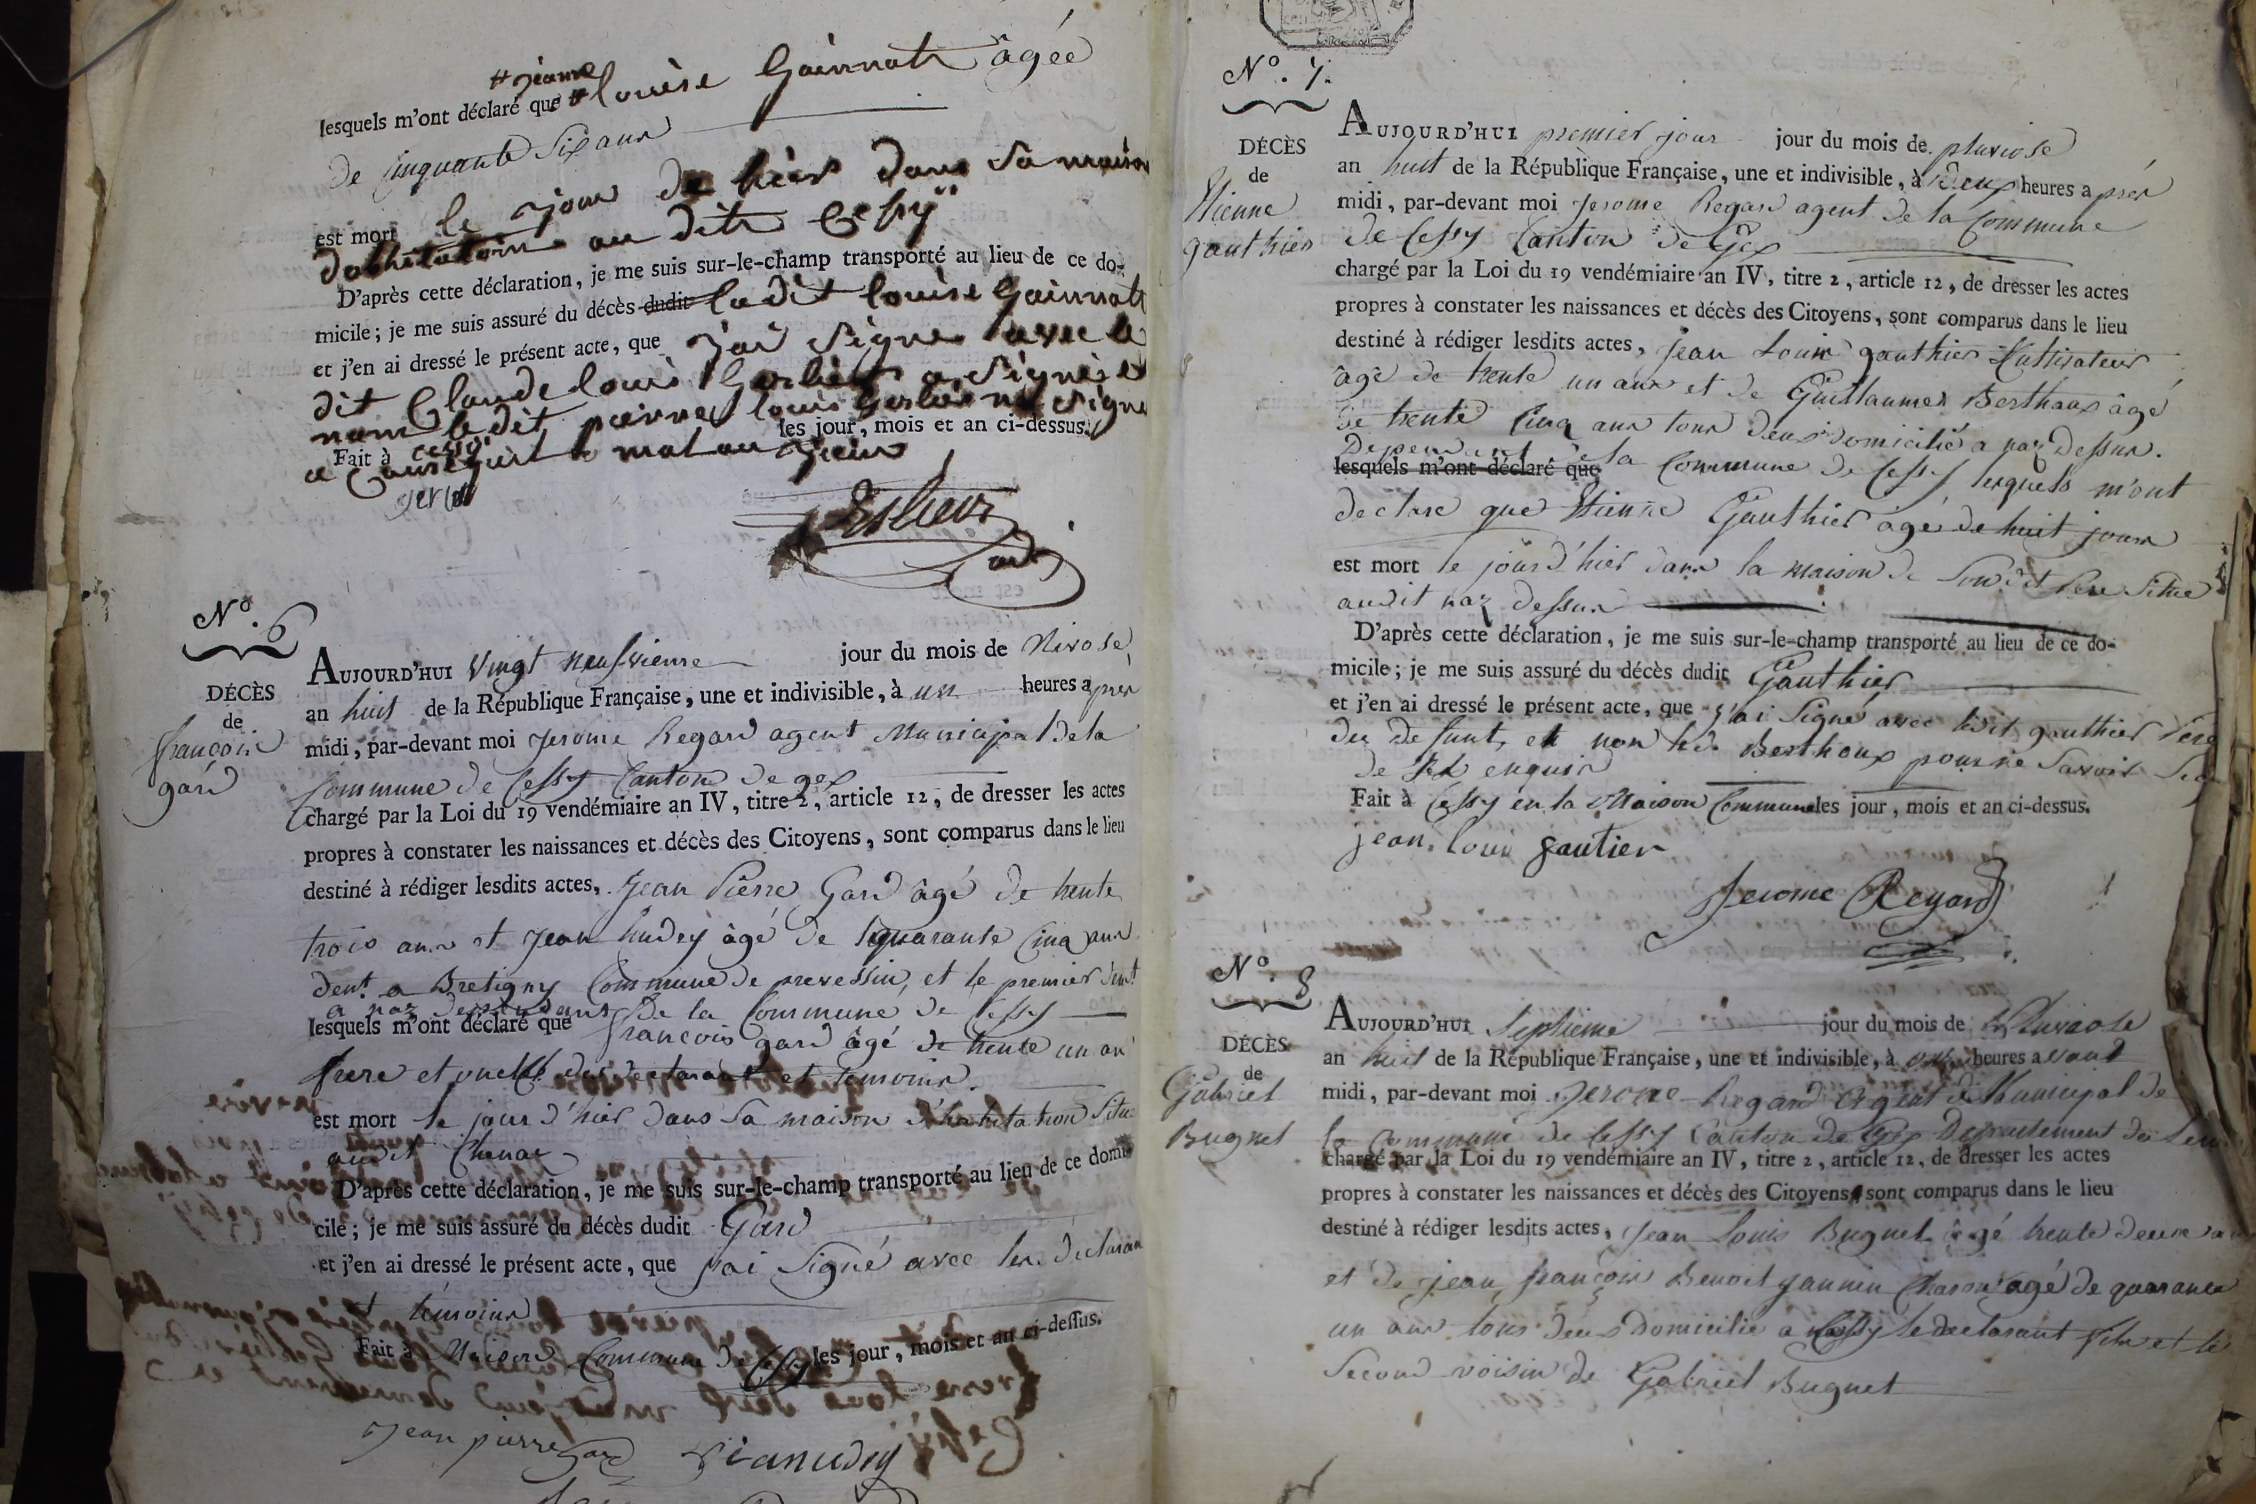 # jeanne
lesquels m'ont déclaré que # louise Gainnat âgée
de Cinquante Six ans
est mort le jour de hier dans sa maison
au dit Cessÿ
D'après cette déclaration, je me suis sur-le-champ transporté au lieu de ce do-
micile; je me suis assuré du décès dudit ladit louise Gainnat
et j'en ai dressé le présent acte, que j'ai signé avec le
dit Claude louis a signé et
non le dit pierre louis signe
Fait à Cessÿ les jour, mois et an ci-dessus.
a cause mal au
N°. 6
DÉCÈS
de
françois
gard
AUJOURD'HUI Vingt neufvieme jour du mois de Nivose
an huit de la République Française, une et indivisible, à un heures après
midi, par-devant moi Jerome Regard agent Municipal de la
Commune de Cessy Canton de gex
chargé par la Loi du 19 vendémiaire an IV, titre 2, article 12, de dresser les actes
propres à constater les naissances et décès des Citoyens, sont comparus dans le lieu
destiné à rédiger lesdits actes, Jean Pierre Gard âgé de trente
trois ans et Jean hudey âgé de quarante Cinq ans
demt. a Bretigny Commune de prevessin, et le premier demt
a naz dessus dans de la Commune de Cessy
lesquels m'ont déclaré que françois gard âgé de trente un an
frere et oncle des declarant et temoins.
est mort le jour d'hier dans sa maison d'habitation Situé
audit Chenaz
D'après cette déclaration, je me suis sur-le-champ transporté au lieu de ce domi-
cile; je me suis assuré du décès dudit Gard
et j'en ai dressé le présent acte, que j'ai signé avec les declarant
et témoins
Fait à Maison Commune de Cessy les jour, mois et an ci-dessus.
Jean pierre gard
N°. 7.
DÉCÈS
de
Etienne
gauthier
AUJOURD'HUI premier jour jour du mois de pluviose
an huit de la République Française, une et indivisible, à deux heures après
midi, par-devant moi Jerome Regard agent de la Commune
de Cessy Canton de Gex
chargé par la Loi du 19 vendémiaire an IV, titre 2, article 12, de dresser les actes
propres à constater les naissances et décès des Citoyens, sont comparus dans le lieu
destiné à rédiger lesdits actes, jean Louis gauthier Cultivateur
âgé de trente un ans et de Guillaume Berthoux âgé
de trente Cinq ans tous deux domicilié a naz dessus.
Dependant de la Commune de Cessy lesquels m'ont
lesquels m'ont déclaré que
declaré que Etienne Gauthier agé de huit jours
est mort le jour d'hier dans la maison de son dit Pere Situé
audit naz dessus
D'après cette déclaration, je me suis sur-le-champ transporté au lieu de ce do-
micile; je me suis assuré du décès dudit Gauthier
et j'en ai dressé le présent acte, que j'ai Signé avec ledit gauthier Pere
du defunt, et non led. Berthoux pour ne Savoir
de ce enquis
Fait à Cessy en la Maison Commune les jour, mois et an ci-dessus.
jean. louis gautier
Jerome Regard
N°. 8
DÉCÈS
de
Gabriel
Bugnet
AUJOURD'HUI Septieme jour du mois de Pluviose
an huit de la République Française, une et indivisible, à onze heures avant
midi, par-devant moi Jerome Regard Agent Municipal de
la Commune de Cessy Canton de Gex Departement du Leman
chargé par la Loi du 19 vendémiaire an IV, titre 2, article 12, de dresser les actes
propres à constater les naissances et décès des Citoyens, sont comparus dans le lieu
destiné à rédiger lesdits actes, Jean Louis Bugnet âgé trente deux ans
et de jean françois Benoit jannin Charon agé de quarante
un ans tous deux Domicilié a Cessy le declarant fils et le
Second voisin de Gabriel Bugnet